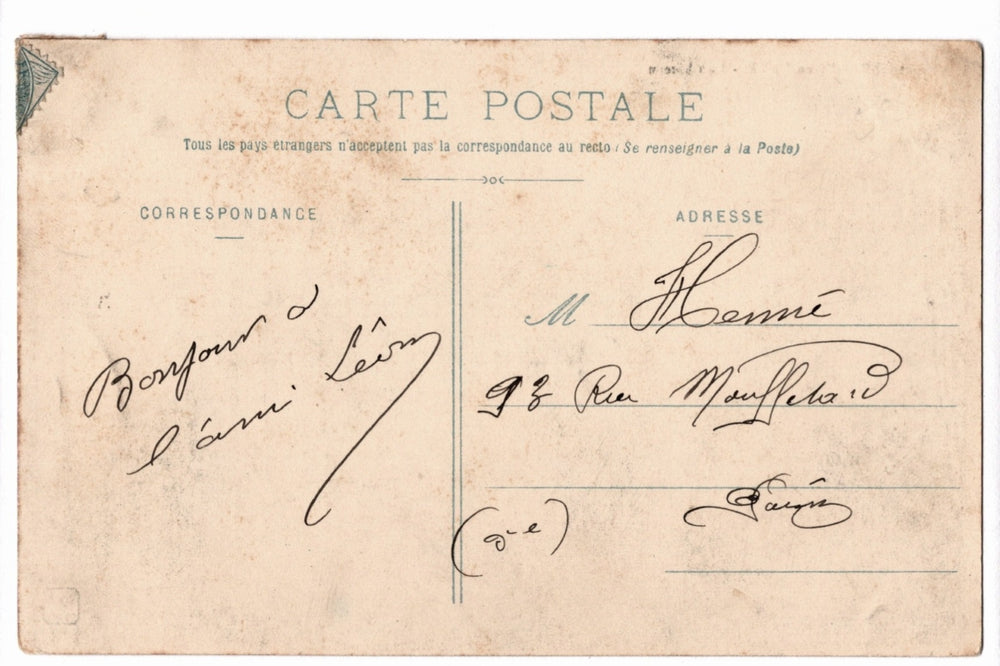 CARTE POSTALE
Tous les pays étrangers n'acceptent pas la correspondance au recto (Se renseigner à la Poste)
CORRESPONDANCE
ADRESSE
Bonjour à
l'ami Léon
M Henné
93 Rue Mouffetard
Paris